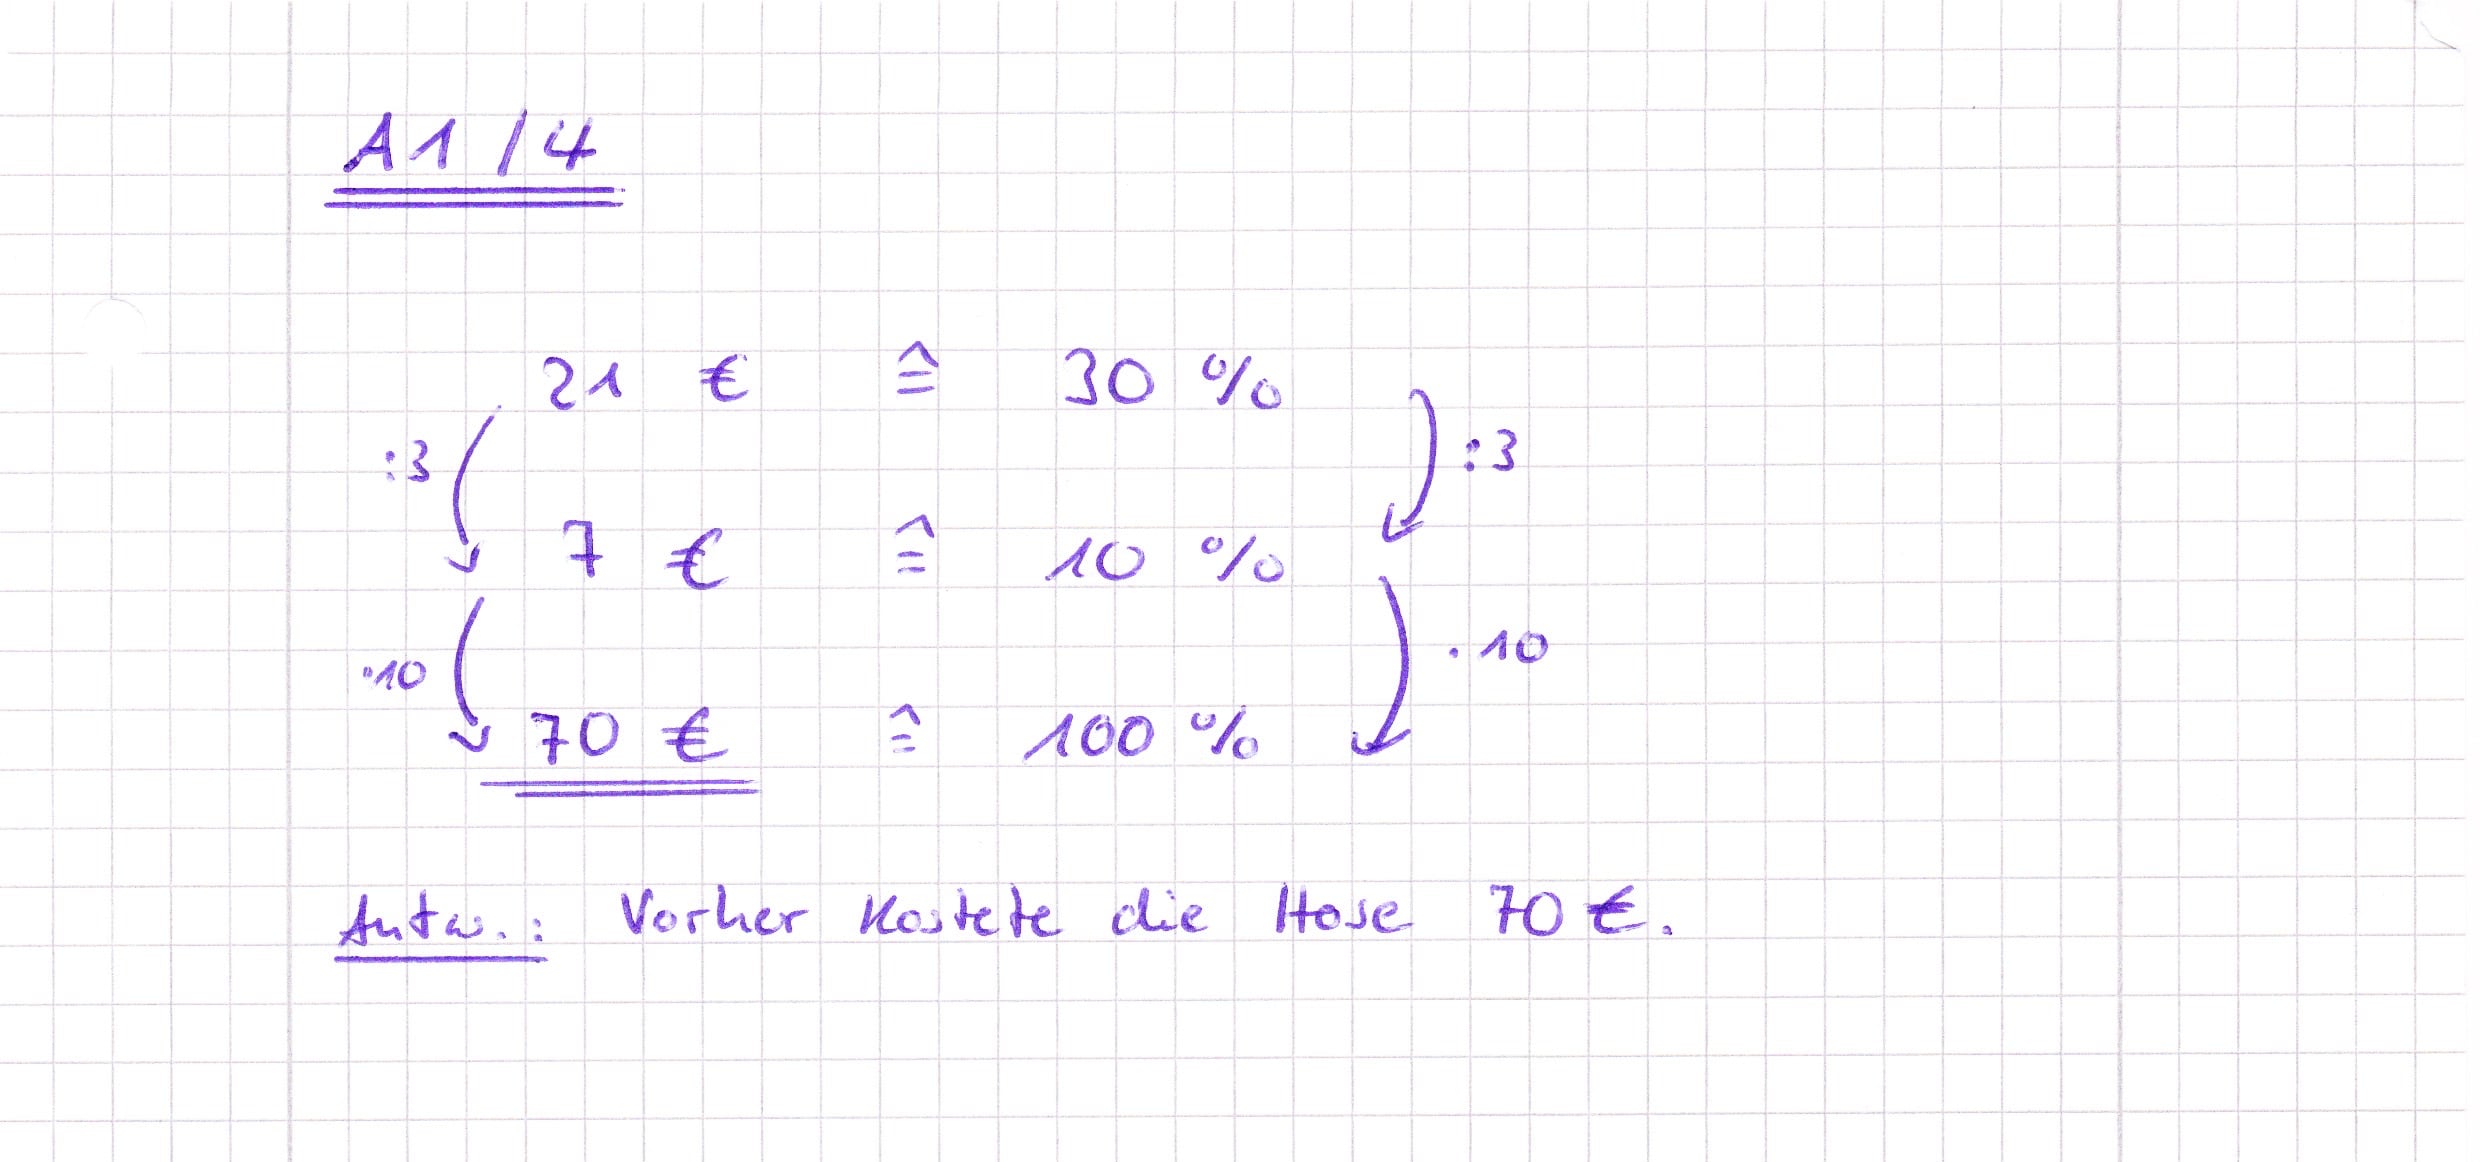 A1 / 4
21 € ≙ 30 %
:3 :3
7 € ≙ 10 %
·10 ·10
70 € ≙ 100 %
Antw.: Vorher kostete die Hose 70 €.